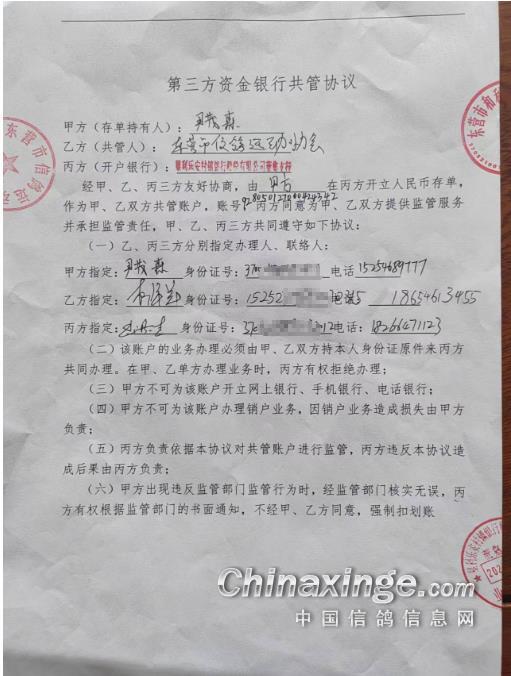 第三方资金银行共管协议
甲方（存单持有人）：
乙方（共管人）：东营市信鸽运动协会
丙方（开户银行）：
经甲、乙、丙三方友好协商，由 甲方 在丙方开立人民币存单，
作为甲、乙双方共管账户，账号 丙方同意为甲、乙双方提供监管服务
并承担监管责任，甲、乙、丙三方共同遵守如下协议：
（一）乙、丙三方分别指定办理人、联络人：
甲方指定： 身份证号： 电话
乙方指定： 身份证号：15252 18654613455
丙方指定： 身份证号： 电话：18266471123
（二）该账户的业务办理必须由甲、乙双方持本人身份证原件来丙方
共同办理。在甲、乙单方办理业务时，丙方有权拒绝办理；
（三）甲方不可为该账户开立网上银行、手机银行、电话银行；
（四）甲方不可为该账户办理销户业务，因销户业务造成损失由甲方
负责；
（五）丙方负责依据本协议对共管账户进行监管，丙方违反本协议造
成后果由丙方负责；
（六）甲方出现违反监管部门监管行为时，经监管部门核实无误，丙
方有权根据监管部门的书面通知，不经甲、乙方同意，强制扣划账
东营市信鸽运动
东营市和
Chinaxinge.com
中国信鸽信息网